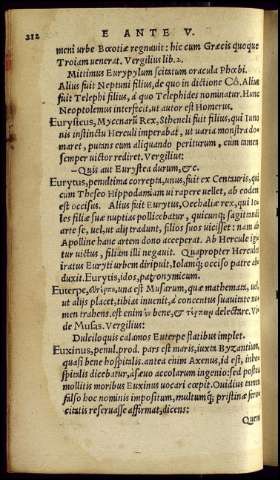 212 E ANTE V.
meni urbe Bœotiæ regnauit: hic cum Græcis quoque
Troiam uenerat. Vergilius lib. 2.
Mittimus Eurypylum scitatum oracula Phœbi.
Alius fuit Neptuni filius, de quo in dictione Cô. Alius
fuit Telephi filius, à quo Telephides nominatur. Hunc
Neoptolemus interfecit, ut autor est Homerus.
Eurystheus, Mycenarũ Rex, Stheneli fuit filius, qui Iuno
nis instinctu Herculi imperabat, ut uaria monstra do-
maret, putans eum aliquando periturum, cum tamen
semper uictor rediret. Vergilius:
—Quis aut Eurystea durum, &c.
Eurytus, penultima correpta, unus fuit ex Centauris, qui
cum Theseo Hippodamiam ui rapere uellet, ab eodem
est occisus. Alius fuit Eurytus, Oechaliæ rex, qui Io-
les filiæ suæ nuptias pollicebatur, quicunque sagittandi
arte se, uel, ut alij tradunt, filios suos uicisset: nam ab
Apolline hanc artem dono acceperat. Ab Hercule igi-
tur uictus, filiam illi negauit. Quapropter Hercules
iratus Euryti urbem diripuit, Iolamque occiso patre ab
duxit. Eurytis, idos, patronymicum.
Euterpe, una est Musarum, quæ mathemata, uel,
ut alijs placet, tibias inuenit, à concentus suauitate no-
men trahens. est enim bene, & delectare. Vi-
de Musas. Vergilius:
Dulciloquis calamos Euterpe flatibus implet.
Euxinus, penul. prod. pars est maris, iuxta Byzantium,
quasi bene hospitalis. antea enim Axenus, id est, inho-
spitalis dicebatur, à sæuo accolarum ingenio: sed postea
mollitis moribus Euxinus uocari cœpit. Ouidius tamen
falso hoc nominis impositum, multumque pristinæ fero
citatis reseruasse affirmat, dicens:
Quem